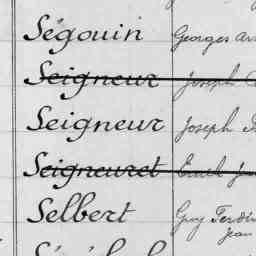 Ségouin Georges
Seigneur Joseph
Seigneur Joseph
Seigneuret
Selbert Guy
Jean